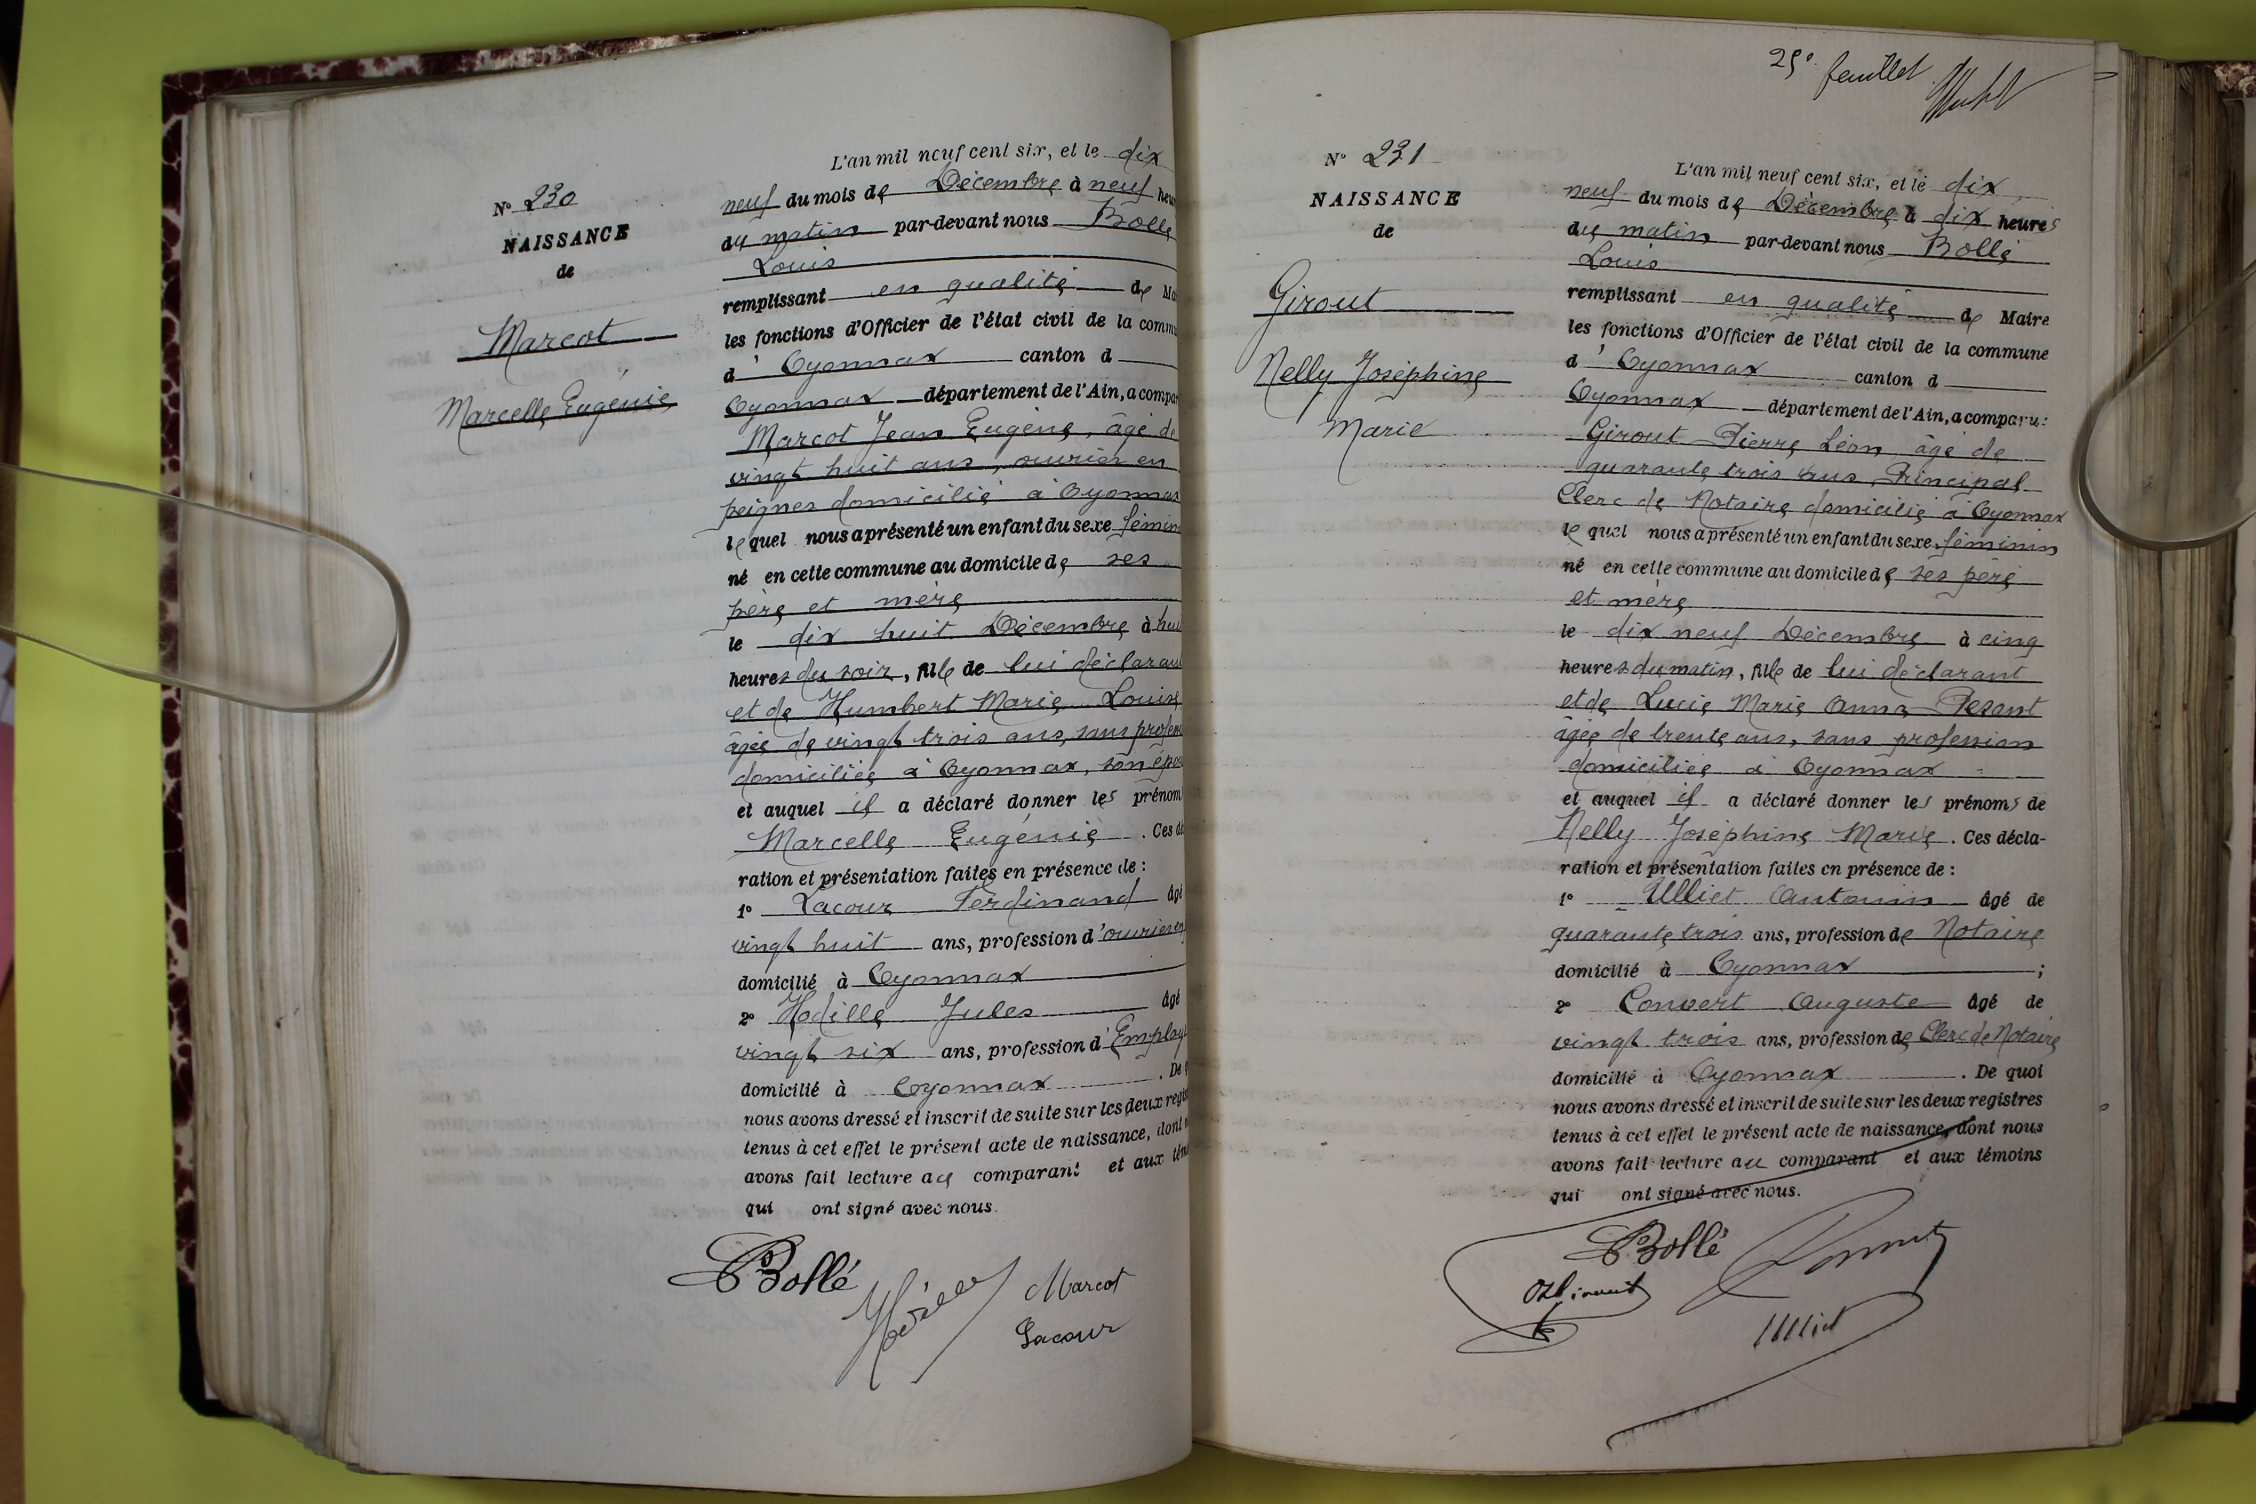 N° 230
NAISSANCE
de
Marcot
Marcelle Eugénie
L'an mil neuf cent six, et le dix
neuf du mois de Décembre à neuf heur
du matin par-devant nous Bollé
Louis
remplissant en qualité de Ma
les fonctions d'Officier de l'état civil de la comm
d' Oyonnax canton d
Oyonnax département de l'Ain, a compar
Marcot Jean Eugène, âgé de
vingt huit ans, ouvrier en
peignes domicilié à Oyonnax
lequel nous a présenté un enfant du sexe fémin
né en cette commune au domicile de ses
père et mère
le dix huit Décembre à hui
heures du soir, fille de lui déclarant
et de Humbert Marie Louise
âgée de vingt trois ans, sans profess
domiciliée à Oyonnax, son épou
et auquel il a déclaré donner les prénom
Marcelle Eugénie . Ces dé
ration et présentation faites en présence de :
1° Lacour Ferdinand âgé
vingt huit ans, profession d'ouvrier en
domicilié à Oyonnax
2° Hodille Jules âgé
vingt six ans, profession d'Employ
domicilié à Oyonnax . De q
nous avons dressé et inscrit de suite sur les deux regis
tenus à cet effet le présent acte de naissance, dont n
avons fait lecture au comparant et aux tém
qui ont signé avec nous.
Bollé
Hodille
Marcot
Lacour
25e feuillet
N° 231
NAISSANCE
de
Girout
Nelly Joséphine
Marie
L'an mil neuf cent six, et le dix
neuf du mois de Décembre à dix heures
du matin par-devant nous Bollé
Louis
remplissant en qualité de Maire
les fonctions d'Officier de l'état civil de la commune
d' Oyonnax canton d
Oyonnax département de l'Ain, a comparu :
Girout Pierre Léon âgé de
quarante trois ans, Principal
Clerc de Notaire domicilié à Oyonnax
lequel nous a présenté un enfant du sexe féminin
né en cette commune au domicile de ses père
et mère
le dix neuf Décembre à cinq
heures du matin, fille de lui déclarant
et de Lucie Marie Anna Pesant
âgée de trente ans, sans profession
domiciliée à Oyonnax
et auquel il a déclaré donner les prénoms de
Nelly Joséphine Marie . Ces décla-
ration et présentation faites en présence de :
1° Ulliet Antonin âgé de
quarante trois ans, profession de Notaire
domicilié à Oyonnax ;
2° Convert Auguste âgé de
vingt trois ans, profession de Clerc de Notaire
domicilié à Oyonnax . De quoi
nous avons dressé et inscrit de suite sur les deux registres
tenus à cet effet le présent acte de naissance, dont nous
avons fait lecture au comparant et aux témoins
qui ont signé avec nous.
Bollé
Convert
Girout
Ulliet